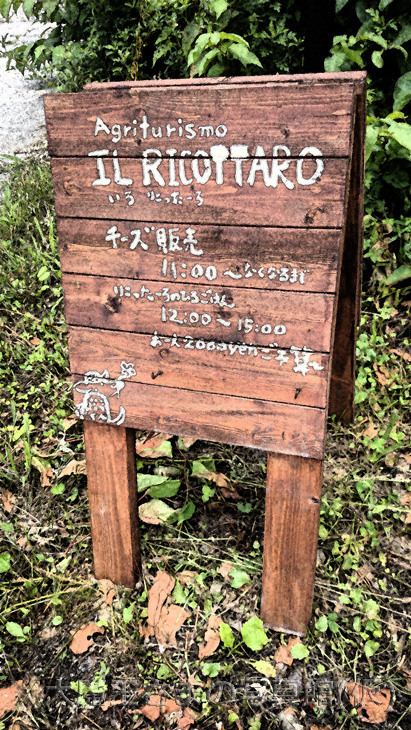 Agriturismo
IL RICOTTARO
いる りこったーろ
チーズ販売
11:00 〜なくなるまで
りこったーろのひるごはん
12:00 〜 15:00
お一人2000yenご予算